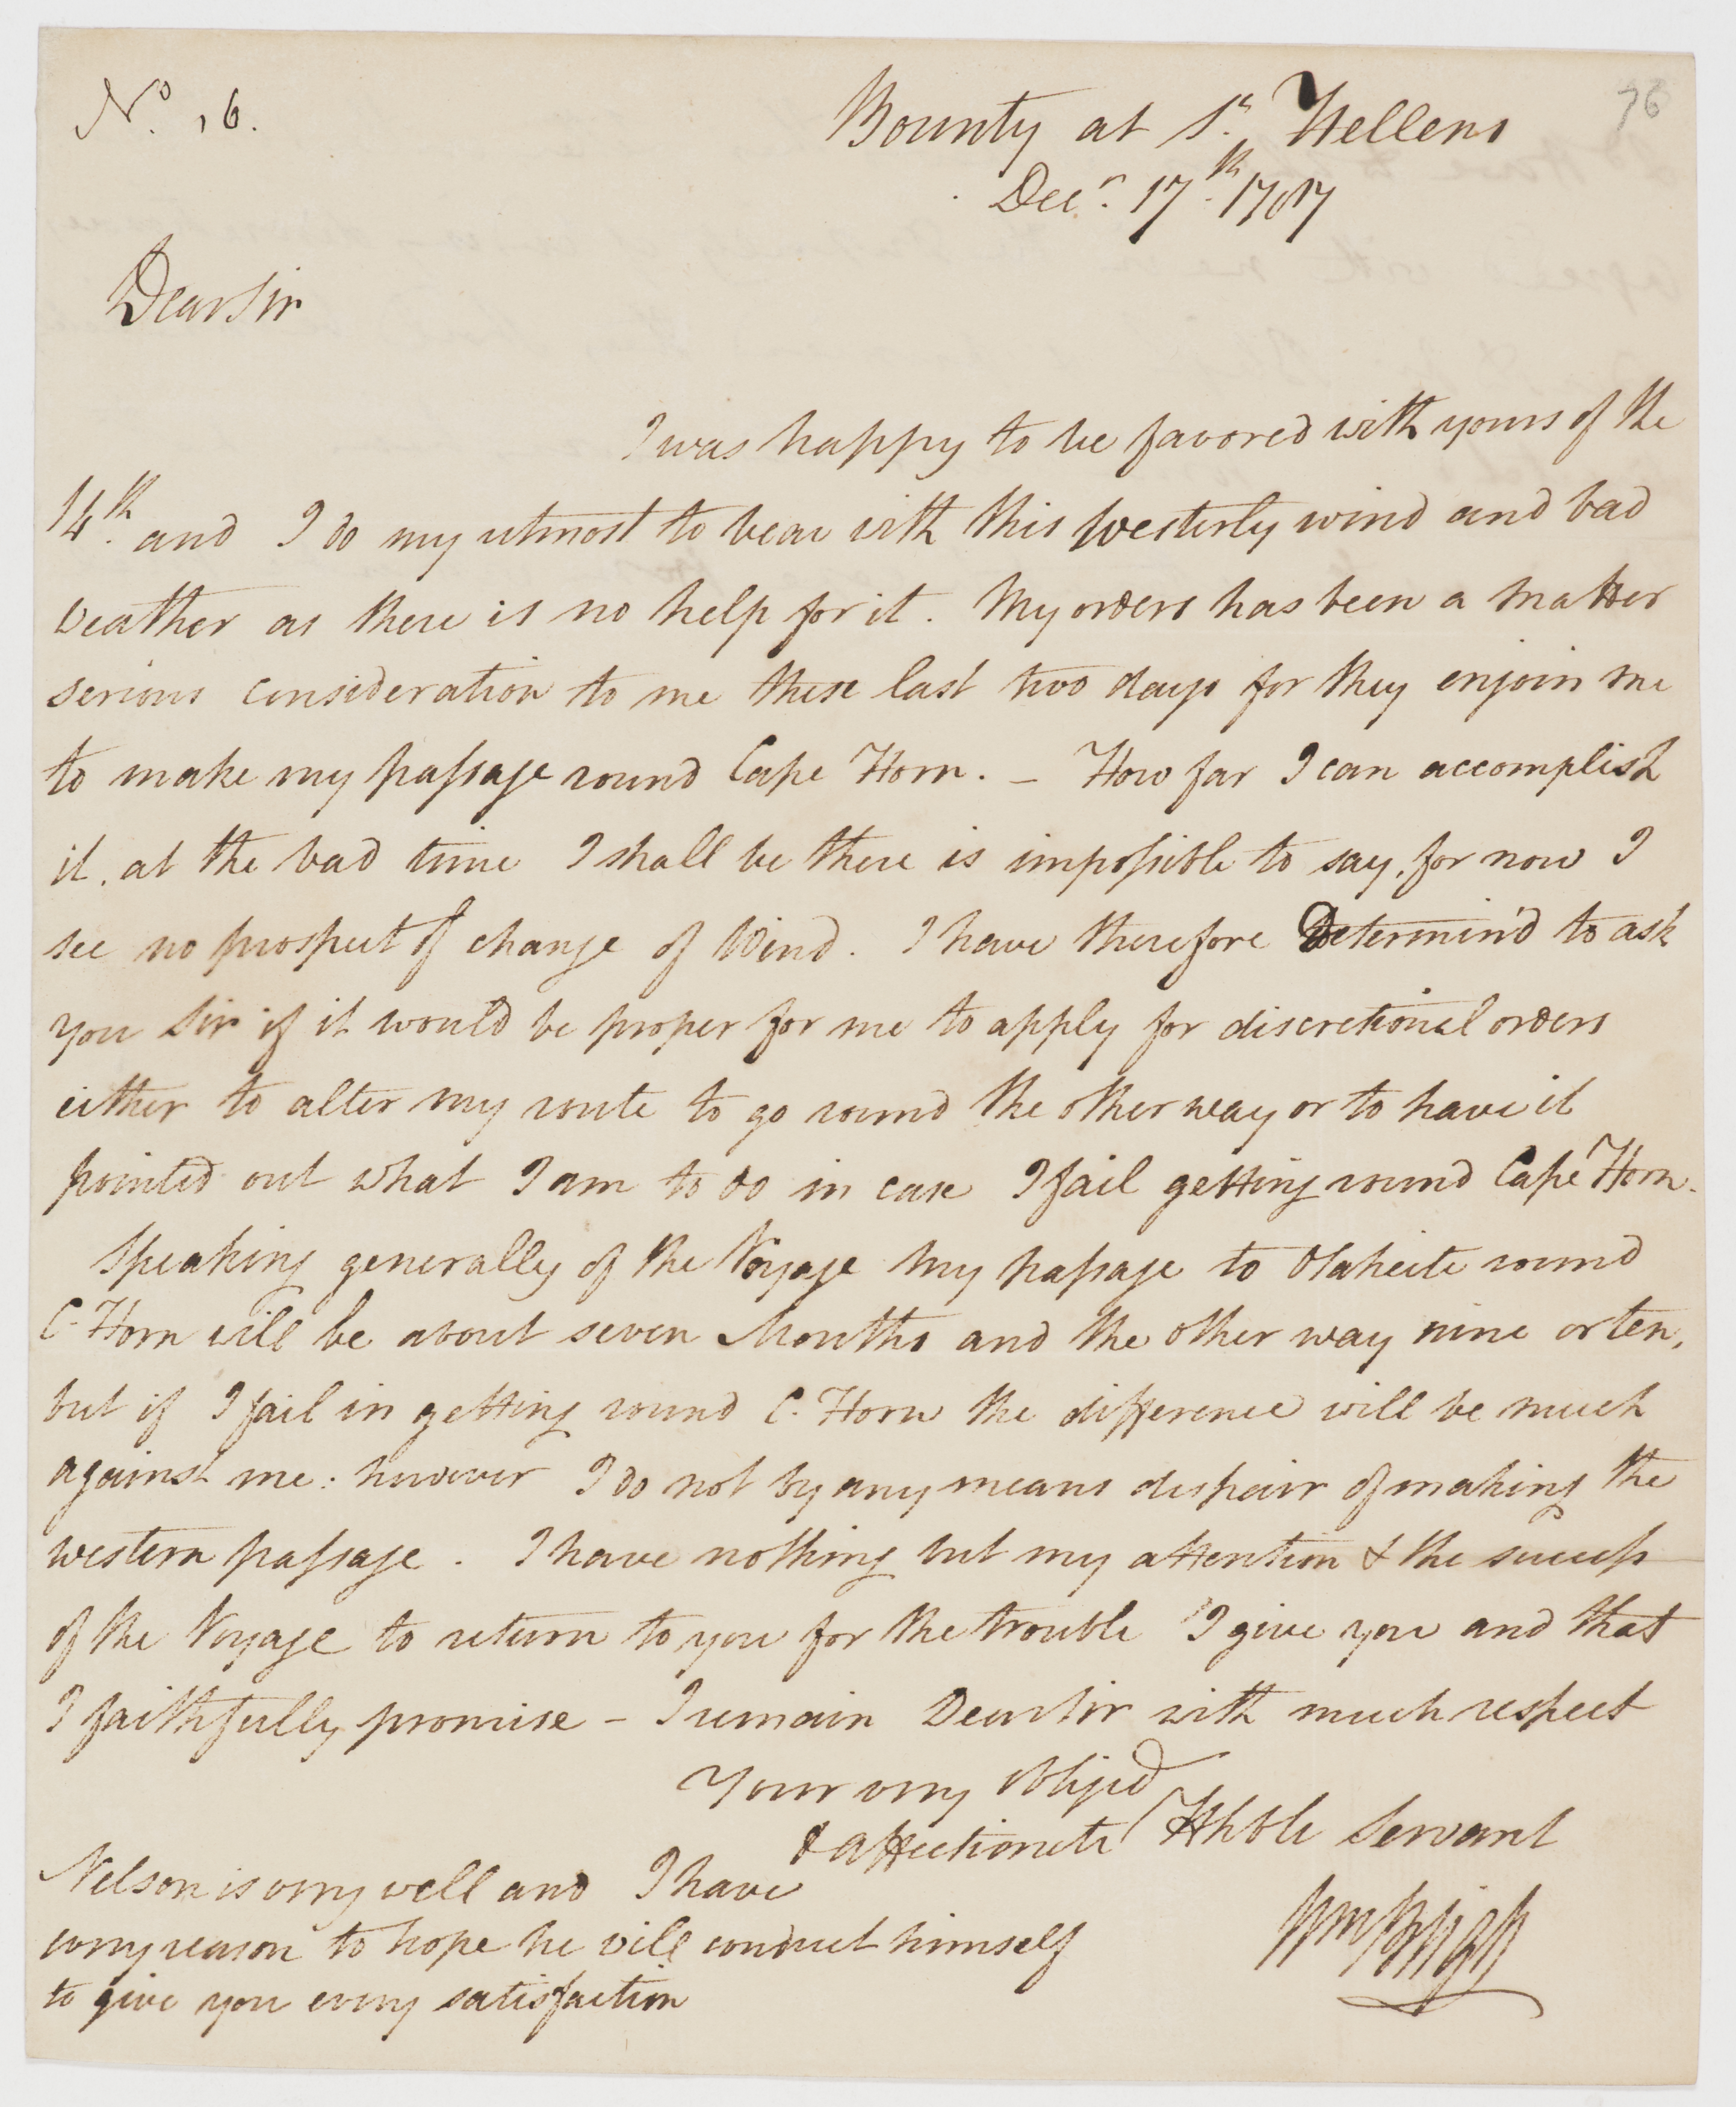 No. 16.
76
Bounty at St. Hellens
Decr. 17th. 1787
Dear Sir
I was happy to be favored with yours of the
14th. and I do my utmost to bear with this Westerly wind and bad
Weather as there is no help for it. My orders has been a matter
serious consideration to me these last two days for they enjoin me
to make my passage round Cape Horn. – How far I can accomplish
it, at the bad time I shall be there is impossible to say, for now I
see no prospect of change of Wind. I have therefore Determin'd to ask
you Sir if it would be proper for me to apply for discretional orders
either to alter my route to go round the other way or to have it
pointed out what I am to do in case I fail getting round Cape Horn.
Speaking generally of the Voyage my passage to Otaheite round
C. Horn will be about seven Months and the other way nine or ten,
but if I fail in getting round C. Horn the difference will be much
against me: however I do not by any means despair of making the
western passage. I have nothing but my attention & the success
of the Voyage to return to you for the trouble I give you and that
I faithfully promise – I remain Dear Sir with much respect
Your very obliged
& affectionate Hble Servant
Wm Bligh
Nelson is very well and I have
every reason to hope he will conduct himself
to give you every satisfaction